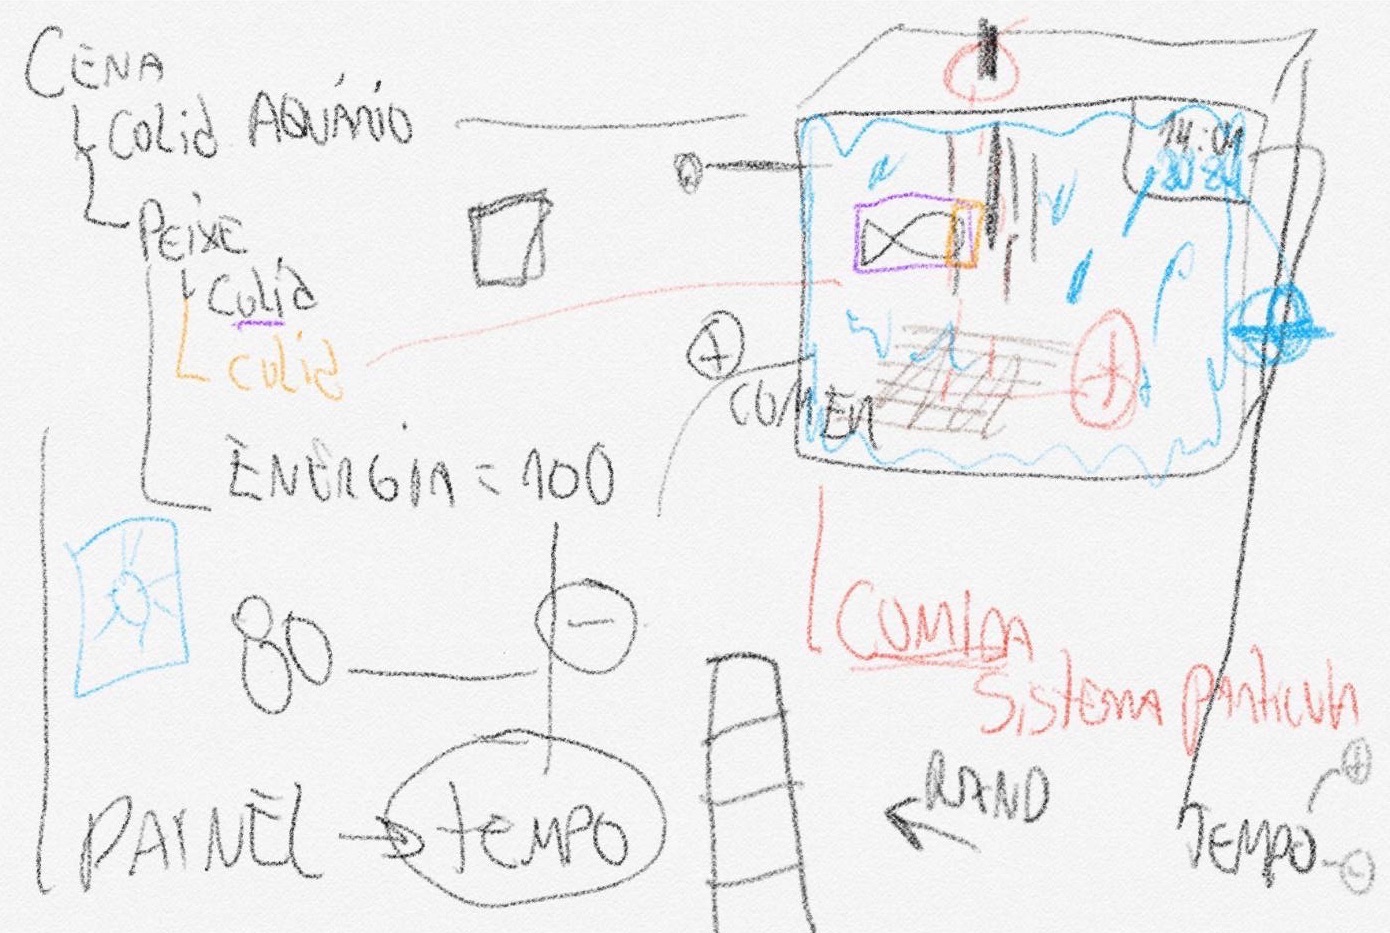 CENA
Colid AQUÁRIO
PEIXE
Colid
Colid
ENERGIA = 100
80
-
PAINEL → TEMPO
14:01
+
COMER
+
COMIDA
SISTEMA PARTICULA
RAND
TEMPO
+
-